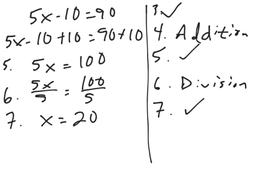 5x-10=90
5x-10+10=90+10
5. 5x=100
6. 5x/5 = 100/5
7. x=20
3. ✓
4. Addition
5. ✓
6. Division
7. ✓